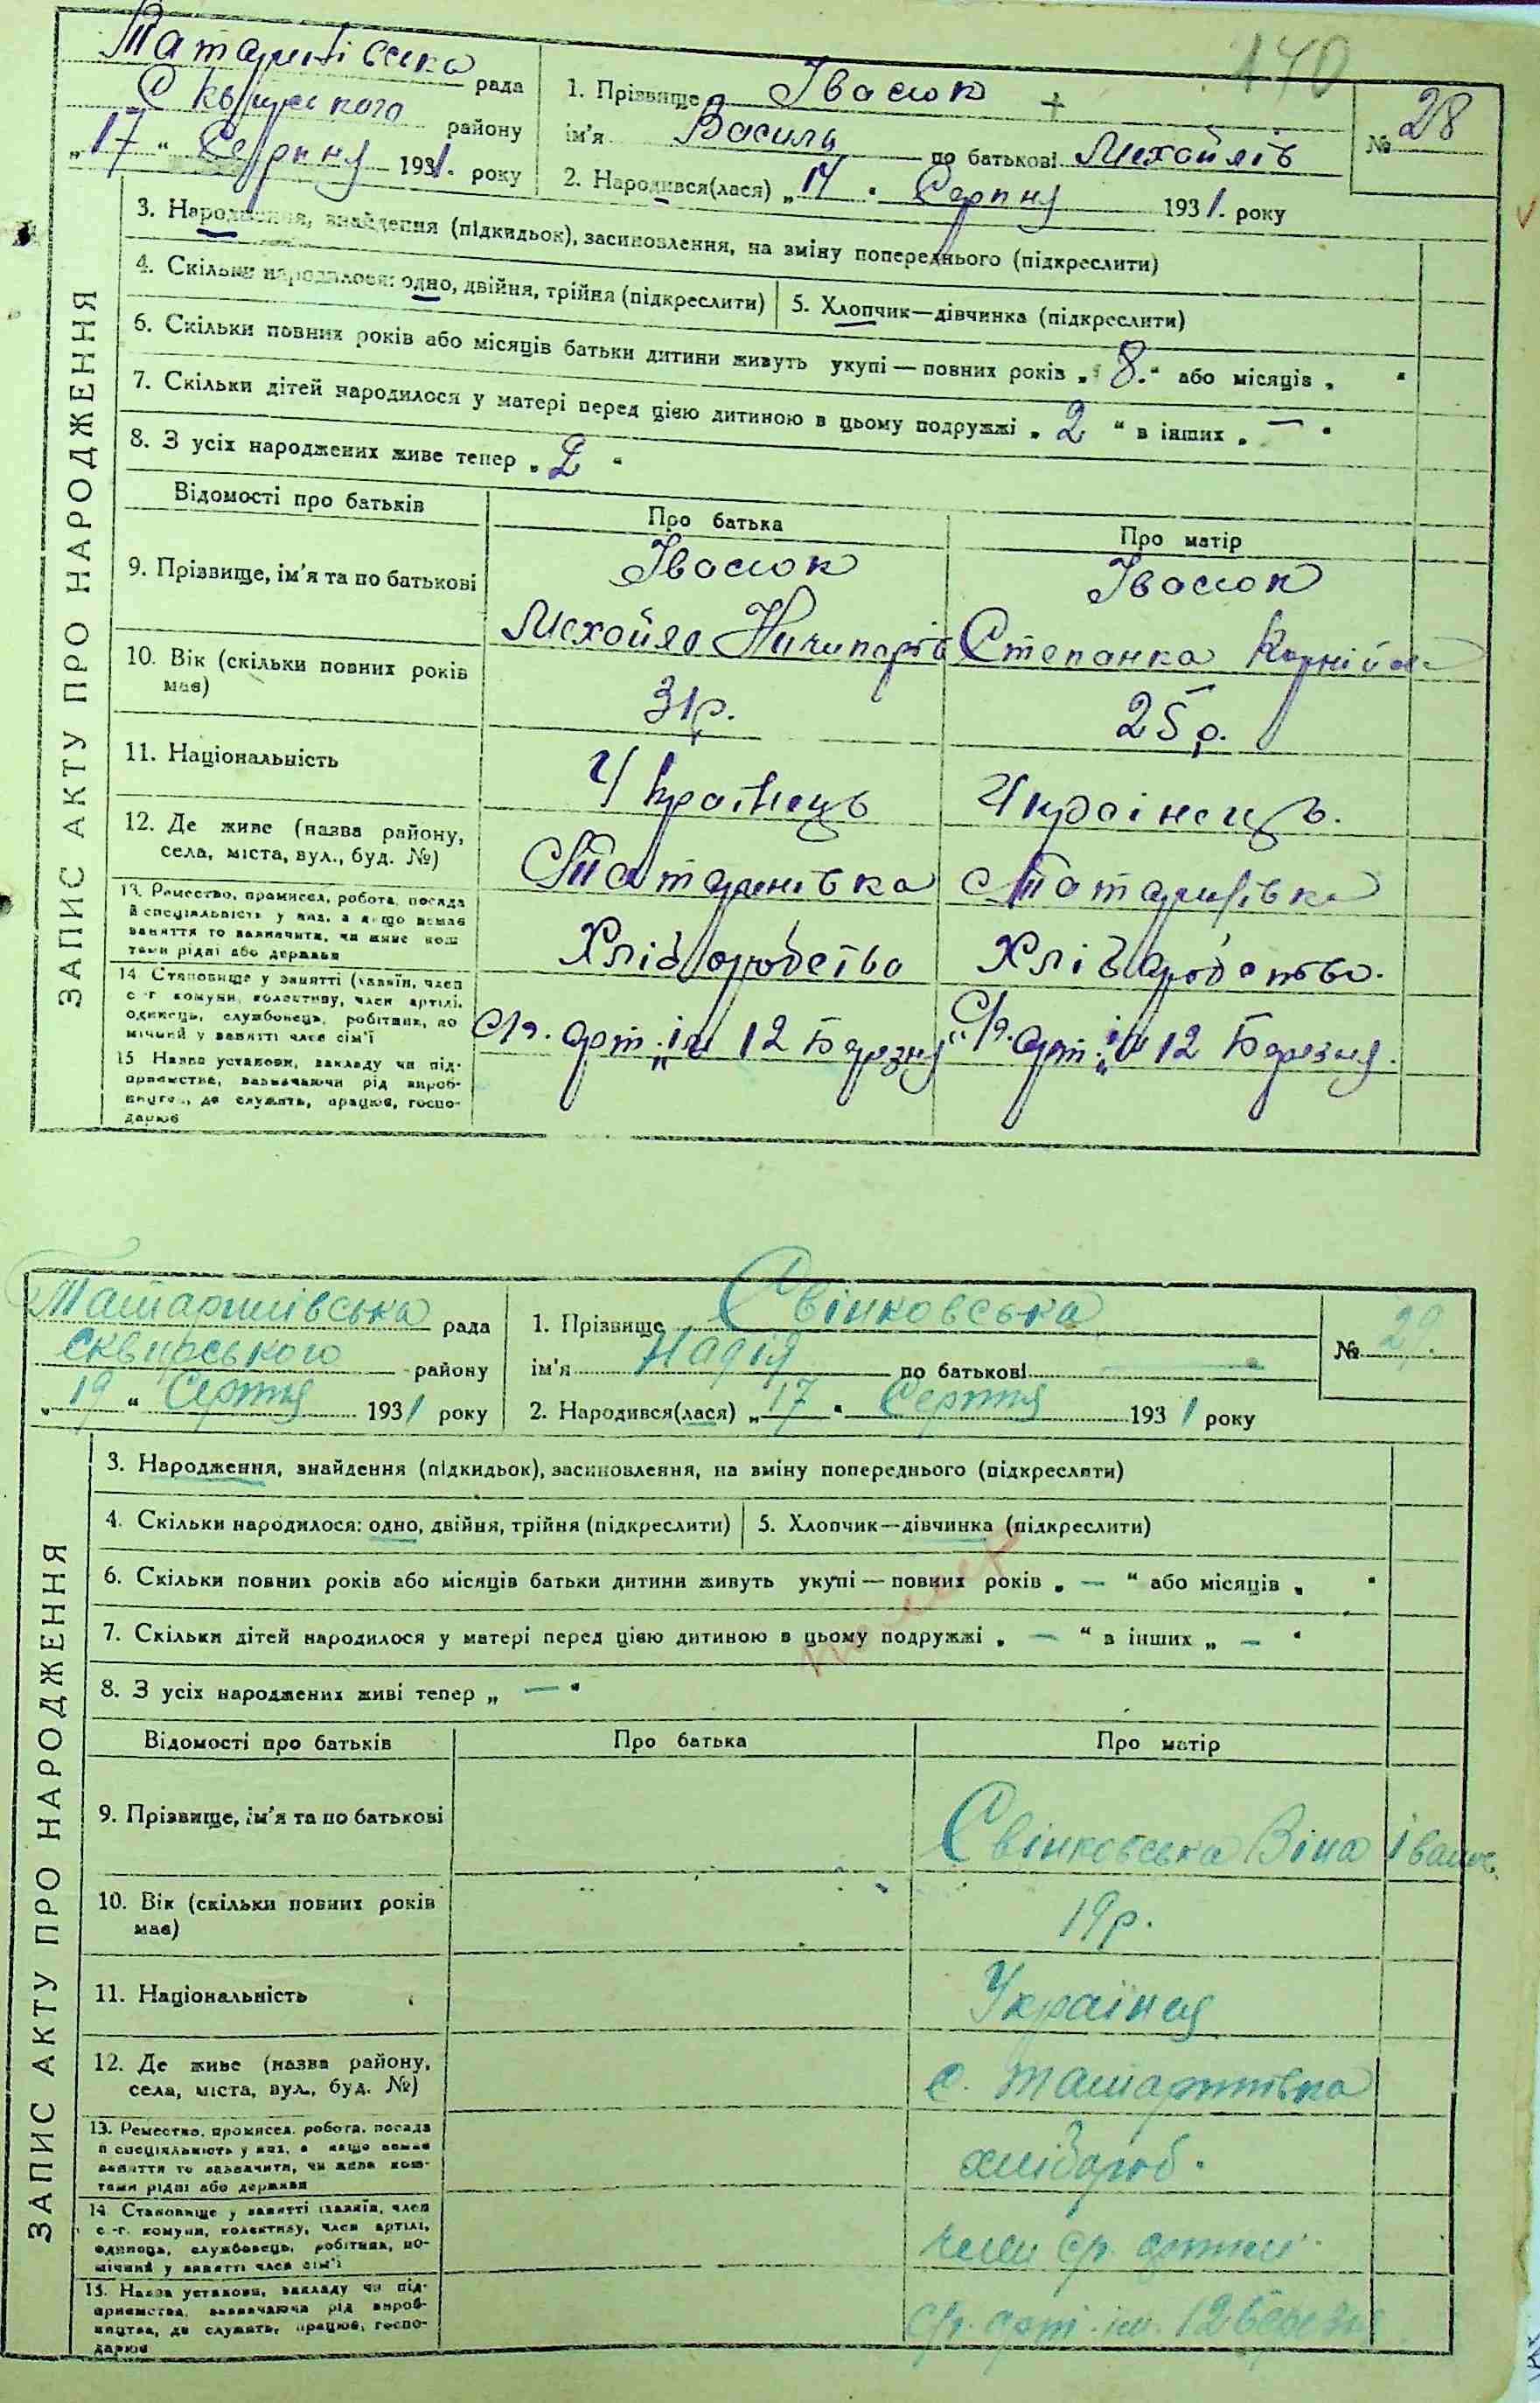 170
Татаринівська рада
Сквирського району
„17“ Серпня 1931. року
1. Прізвище Івасюк +
ім'я Василь по батькові Михайлів
№ 28
2. Народився(лася) „14“ Серпня 1931. року
3. Народження, знайдення (підкидьок), засиновлення, на зміну попереднього (підкреслити)
4. Скільки народилося: одно, двійня, трійня (підкреслити)
5. Хлопчик—дівчинка (підкреслити)
6. Скільки повних років або місяців батьки дитини живуть укупі—повних років „8.“ або місяців „ “
7. Скільки дітей народилося у матері перед цією дитиною в цьому подружжі „2“ в інших „—“
8. З усіх народжених живе тепер „2“
ЗАПИС АКТУ ПРО НАРОДЖЕННЯ
Відомості про батьків
Про батька
Про матір
9. Прізвище, ім'я та по батькові
Івасюк
Михайло Ничипорів
Івасюк
Степанка
10. Вік (скільки повних років
має)
31р.
25 р.
11. Національність
Українець
Українець.
12. Де живе (назва району,
села, міста, вул., буд. №)
с Татаринівка
с Татаринівка
13. Ремество, промисел, робота, посада
й спеціяльність у них, а якщо немає
заняття то зазначити, чи живе кош
тами рідні або держави
Хліборобство
Хліборобство.
14. Становище у занятті (хазяїн, член
с-г комуни, колективу, член артілі,
одинець, службовець, робітник, по
мічний у занятті член сім'ї
С/г. арт. ім 12 Березня
С/г. арт. ім 12 Березня.
15 Назва установи, закладу чи під-
приємства, зазначаючи рід вироб-
ництва, де служить, працює, госпо-
дарює
Татаринівська рада
Сквирського району
„19“ Серпня 1931 року
1. Прізвище Свінковська
ім'я Надія по батькові —
№ 29.
2. Народився(лася) „17“ Серпня 1931 року
3. Народження, знайдення (підкидьок), засиновлення, на зміну попереднього (підкреслити)
4. Скільки народилося: одно, двійня, трійня (підкреслити)
5. Хлопчик—дівчинка (підкреслити)
6. Скільки повних років або місяців батьки дитини живуть укупі—повних років „—“ або місяців „ “
7. Скільки дітей народилося у матері перед цією дитиною в цьому подружжі „—“ в інших „—“
8. З усіх народжених живі тепер „—“
ЗАПИС АКТУ ПРО НАРОДЖЕННЯ
Відомості про батьків
Про батька
Про матір
9. Прізвище, ім'я та по батькові
Свінковська Зіна Іванов.
10. Вік (скільки повних років
має)
19р.
11. Національність
Українця
12. Де живе (назва району,
села, міста, вул., буд. №)
с. Татаринівка
13. Ремество, промисел, робота, посада
й спеціяльність у них, а якщо немає
заняття то зазначити, чи живе кош-
тами рідні або держави
хлібороб.
14. Становище у занятті (хазяїн, член
с.-г. комуни, колективу, член артілі,
одинець, службовець, робітник, по-
мічний у занятті член сім'ї
член с/г. артілі.
15. Назва установи, закладу чи під-
приємства, зазначаючи рід вироб-
ництва, де служить, працює, госпо-
дарює
с/г. арт. ім. 12 березня